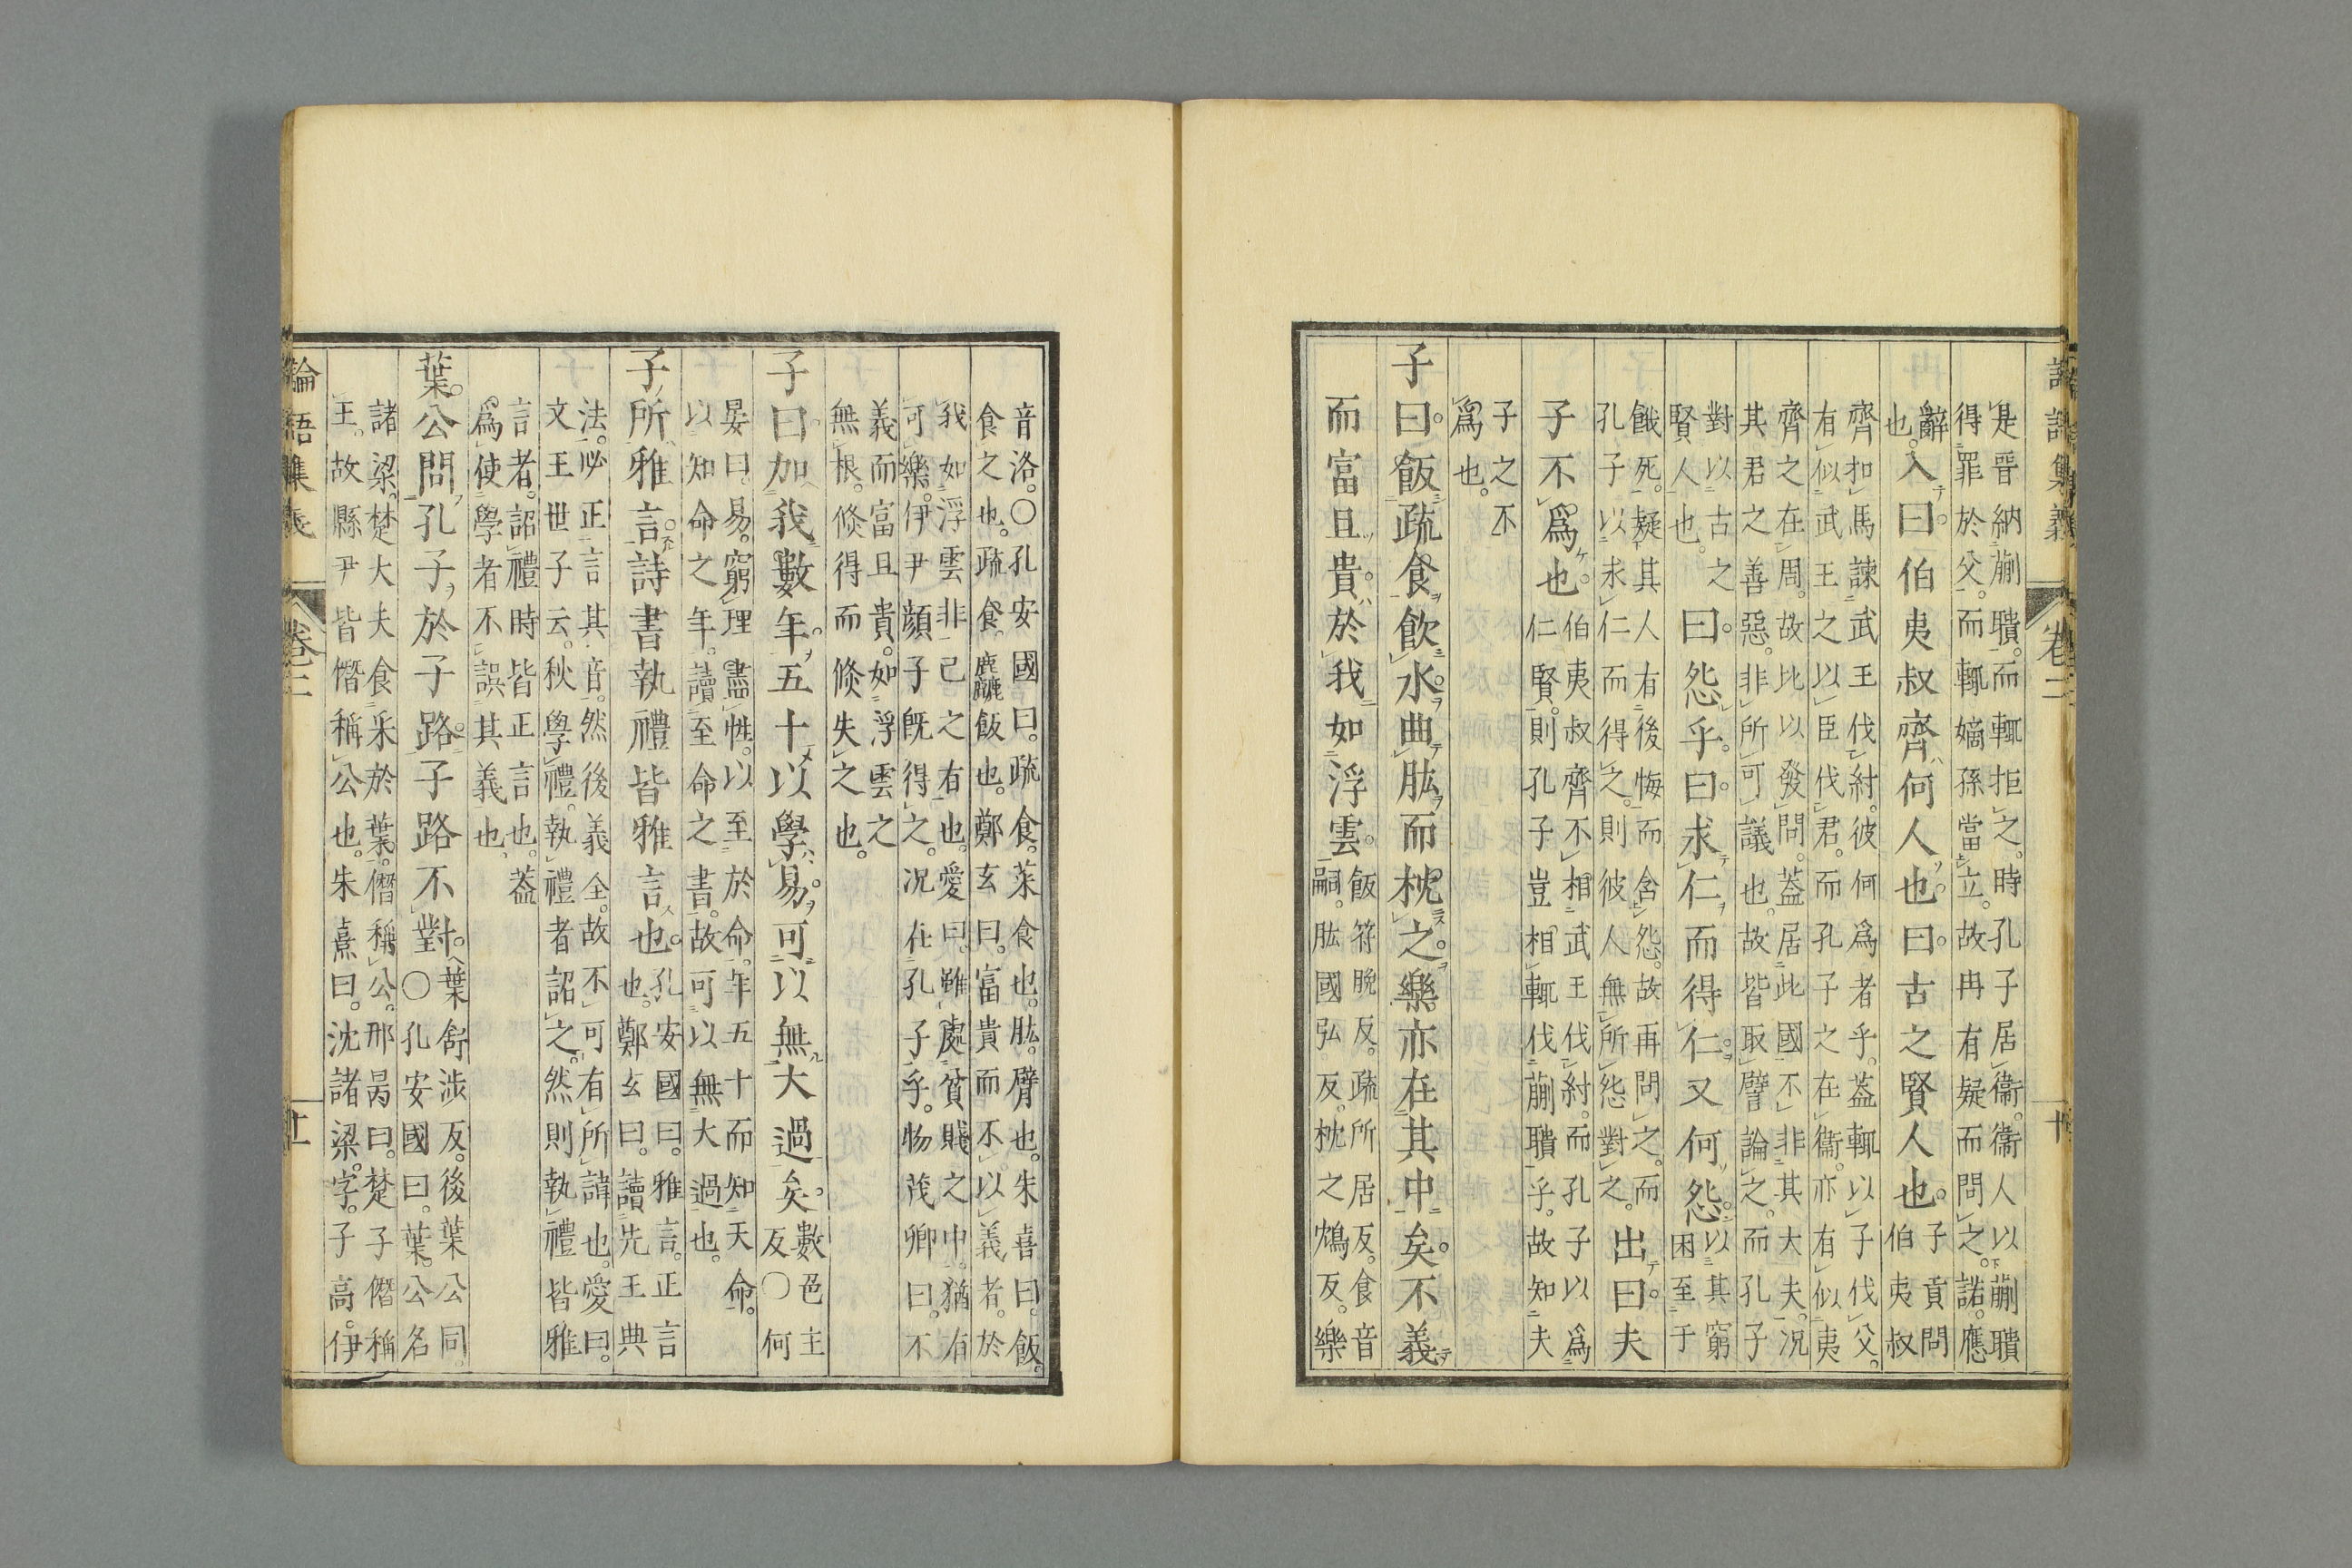 論語集義 卷二 十
是晉納蒯聵。而輒拒之。時孔子居衞。衞人以蒯聵
得罪於父。而輒嫡孫當立。故冉有疑而問之。諾。應
辭
也。
入曰。伯夷叔齊何人也。曰。古之賢人也。
子貢問
伯夷叔
齊扣馬諫武王伐紂。彼何爲者乎。蓋輒以子伐父。
有似武王之以臣伐君。而孔子之在衞。亦有似夷
齊之在周。故比以發問。蓋居此國不非其大夫。況
其君之善惡。非所可議也。故皆取譬論之。而孔子
對以古之
賢人也。
曰。怨乎。曰。求仁而得仁。又何怨。
以其窮
困至于
餓死。疑其人有後悔而含怨。故再問之。而
孔子以求仁而得之。則彼人無所怨對之。
出曰。夫
子不爲也。
伯夷叔齊不相武王伐紂。而孔子以爲
仁賢。則孔子豈相輒伐蒯聵乎。故知夫
子之不
爲也。
子曰。飯疏食。飲水。曲肱而枕之。樂亦在其中矣。不義
而富且貴。於我如浮雲。
飯符晚反。疏所居反。食音
嗣。肱國弘反。枕之鴆反。樂
音洛。〇孔安國曰。疏食。菜食也。肱。臂也。朱熹曰。飯。
食之也。疏食。麤糲飯也。鄭玄曰。富貴而不以義者。於
我如浮雲非己之有也。愛曰。雖處貧賤之中。猶有
可樂。伊尹顏子既得之。況在孔子乎。物茂卿曰。不
義而富且貴。如浮雲之
無根。倐得而倐失之也。
子曰。加我數年。五十以學易。可以無大過矣。
數色主
反〇何
晏曰。易。窮理盡性。以至於命。年五十而知天命。
以知命之年。讀至命之書。故可以無大過也。
子所雅言。詩書執禮皆雅言也。
孔安國曰。雅言。正言
也。鄭玄曰。讀先王典
法。必正言其音。然後義全。故不可有所諱也。愛曰。
文王世子云。秋學禮。執禮者詔之。然則執禮皆雅
言者。詔禮時皆正言也。蓋
爲使學者不誤其義也。
葉公問孔子於子路。子路不對。
葉舒涉反。後葉公同。
〇孔安國曰。葉。公名
諸梁。楚大夫食采於葉。僭稱公。邢昺曰。楚子僭稱
王。故縣尹皆僭稱公也。朱熹曰。沈諸梁。字。子高。伊
論語集義 卷二 十一